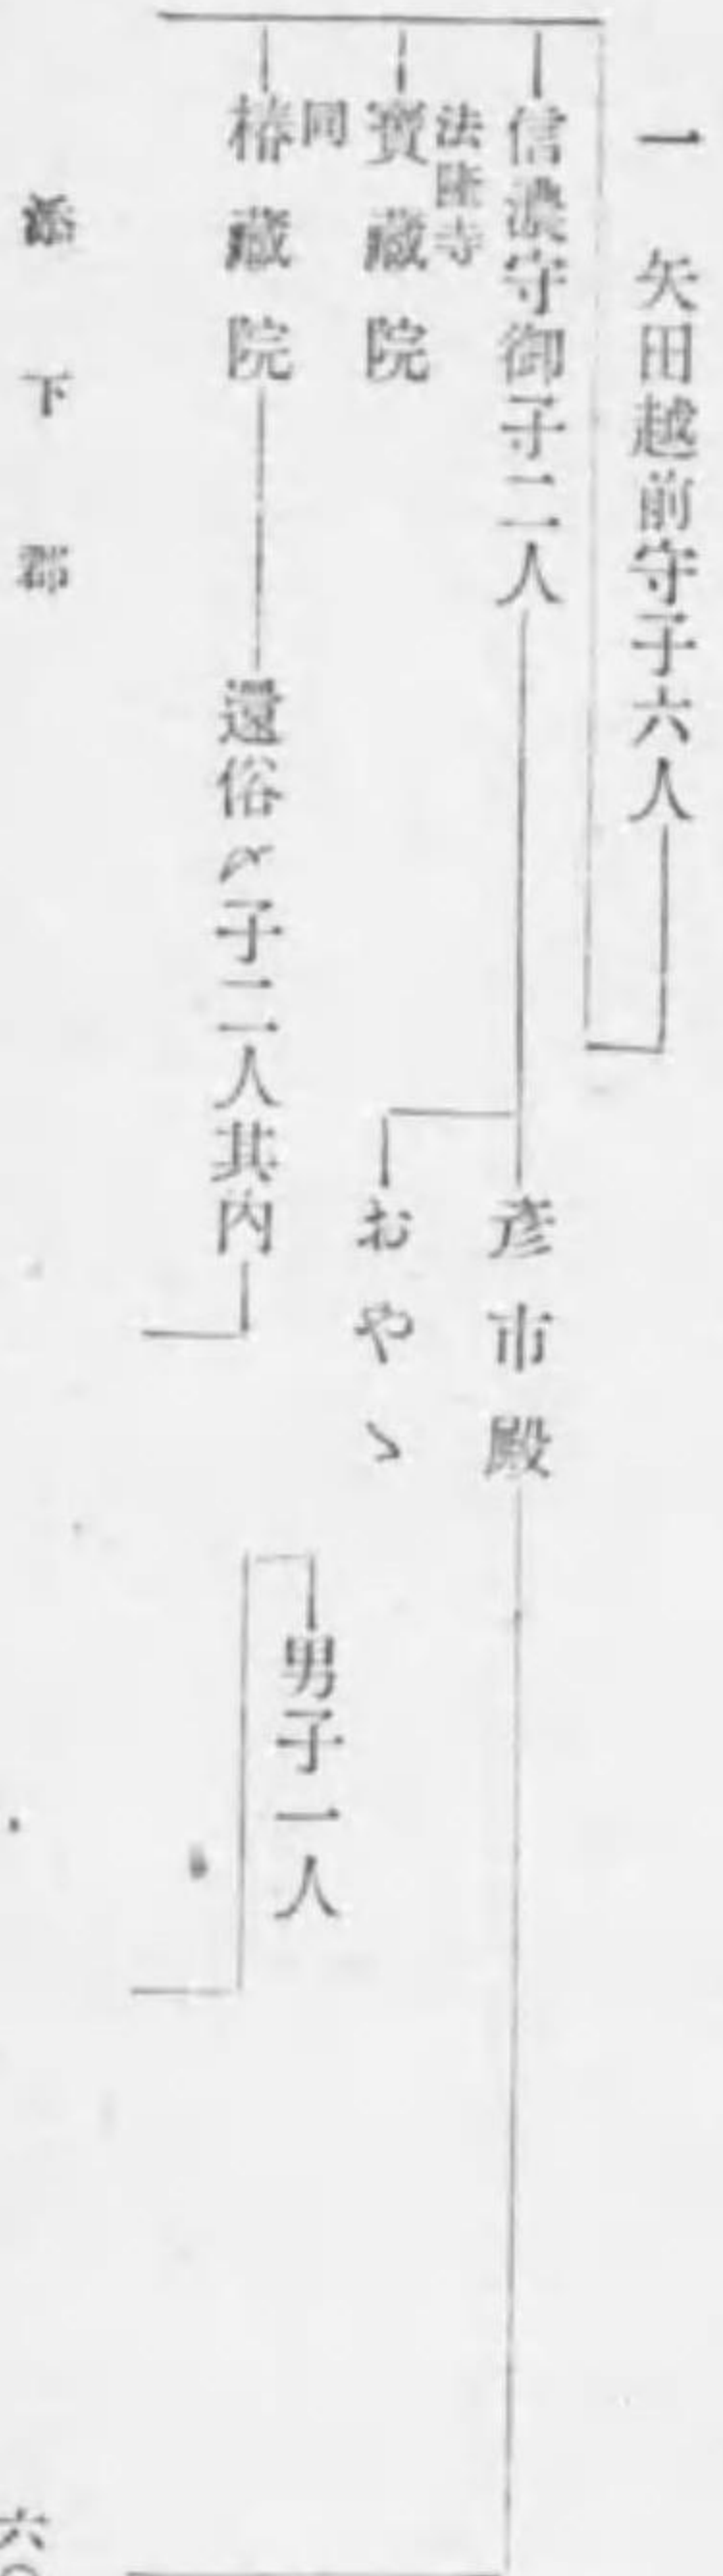 一 矢田越前守子六人
信濃守御子二人
彦市殿
おやゝ
法隆寺
寶蔵院
同
椿蔵院
還俗〆子二人其内
男子一人
添下郡
六